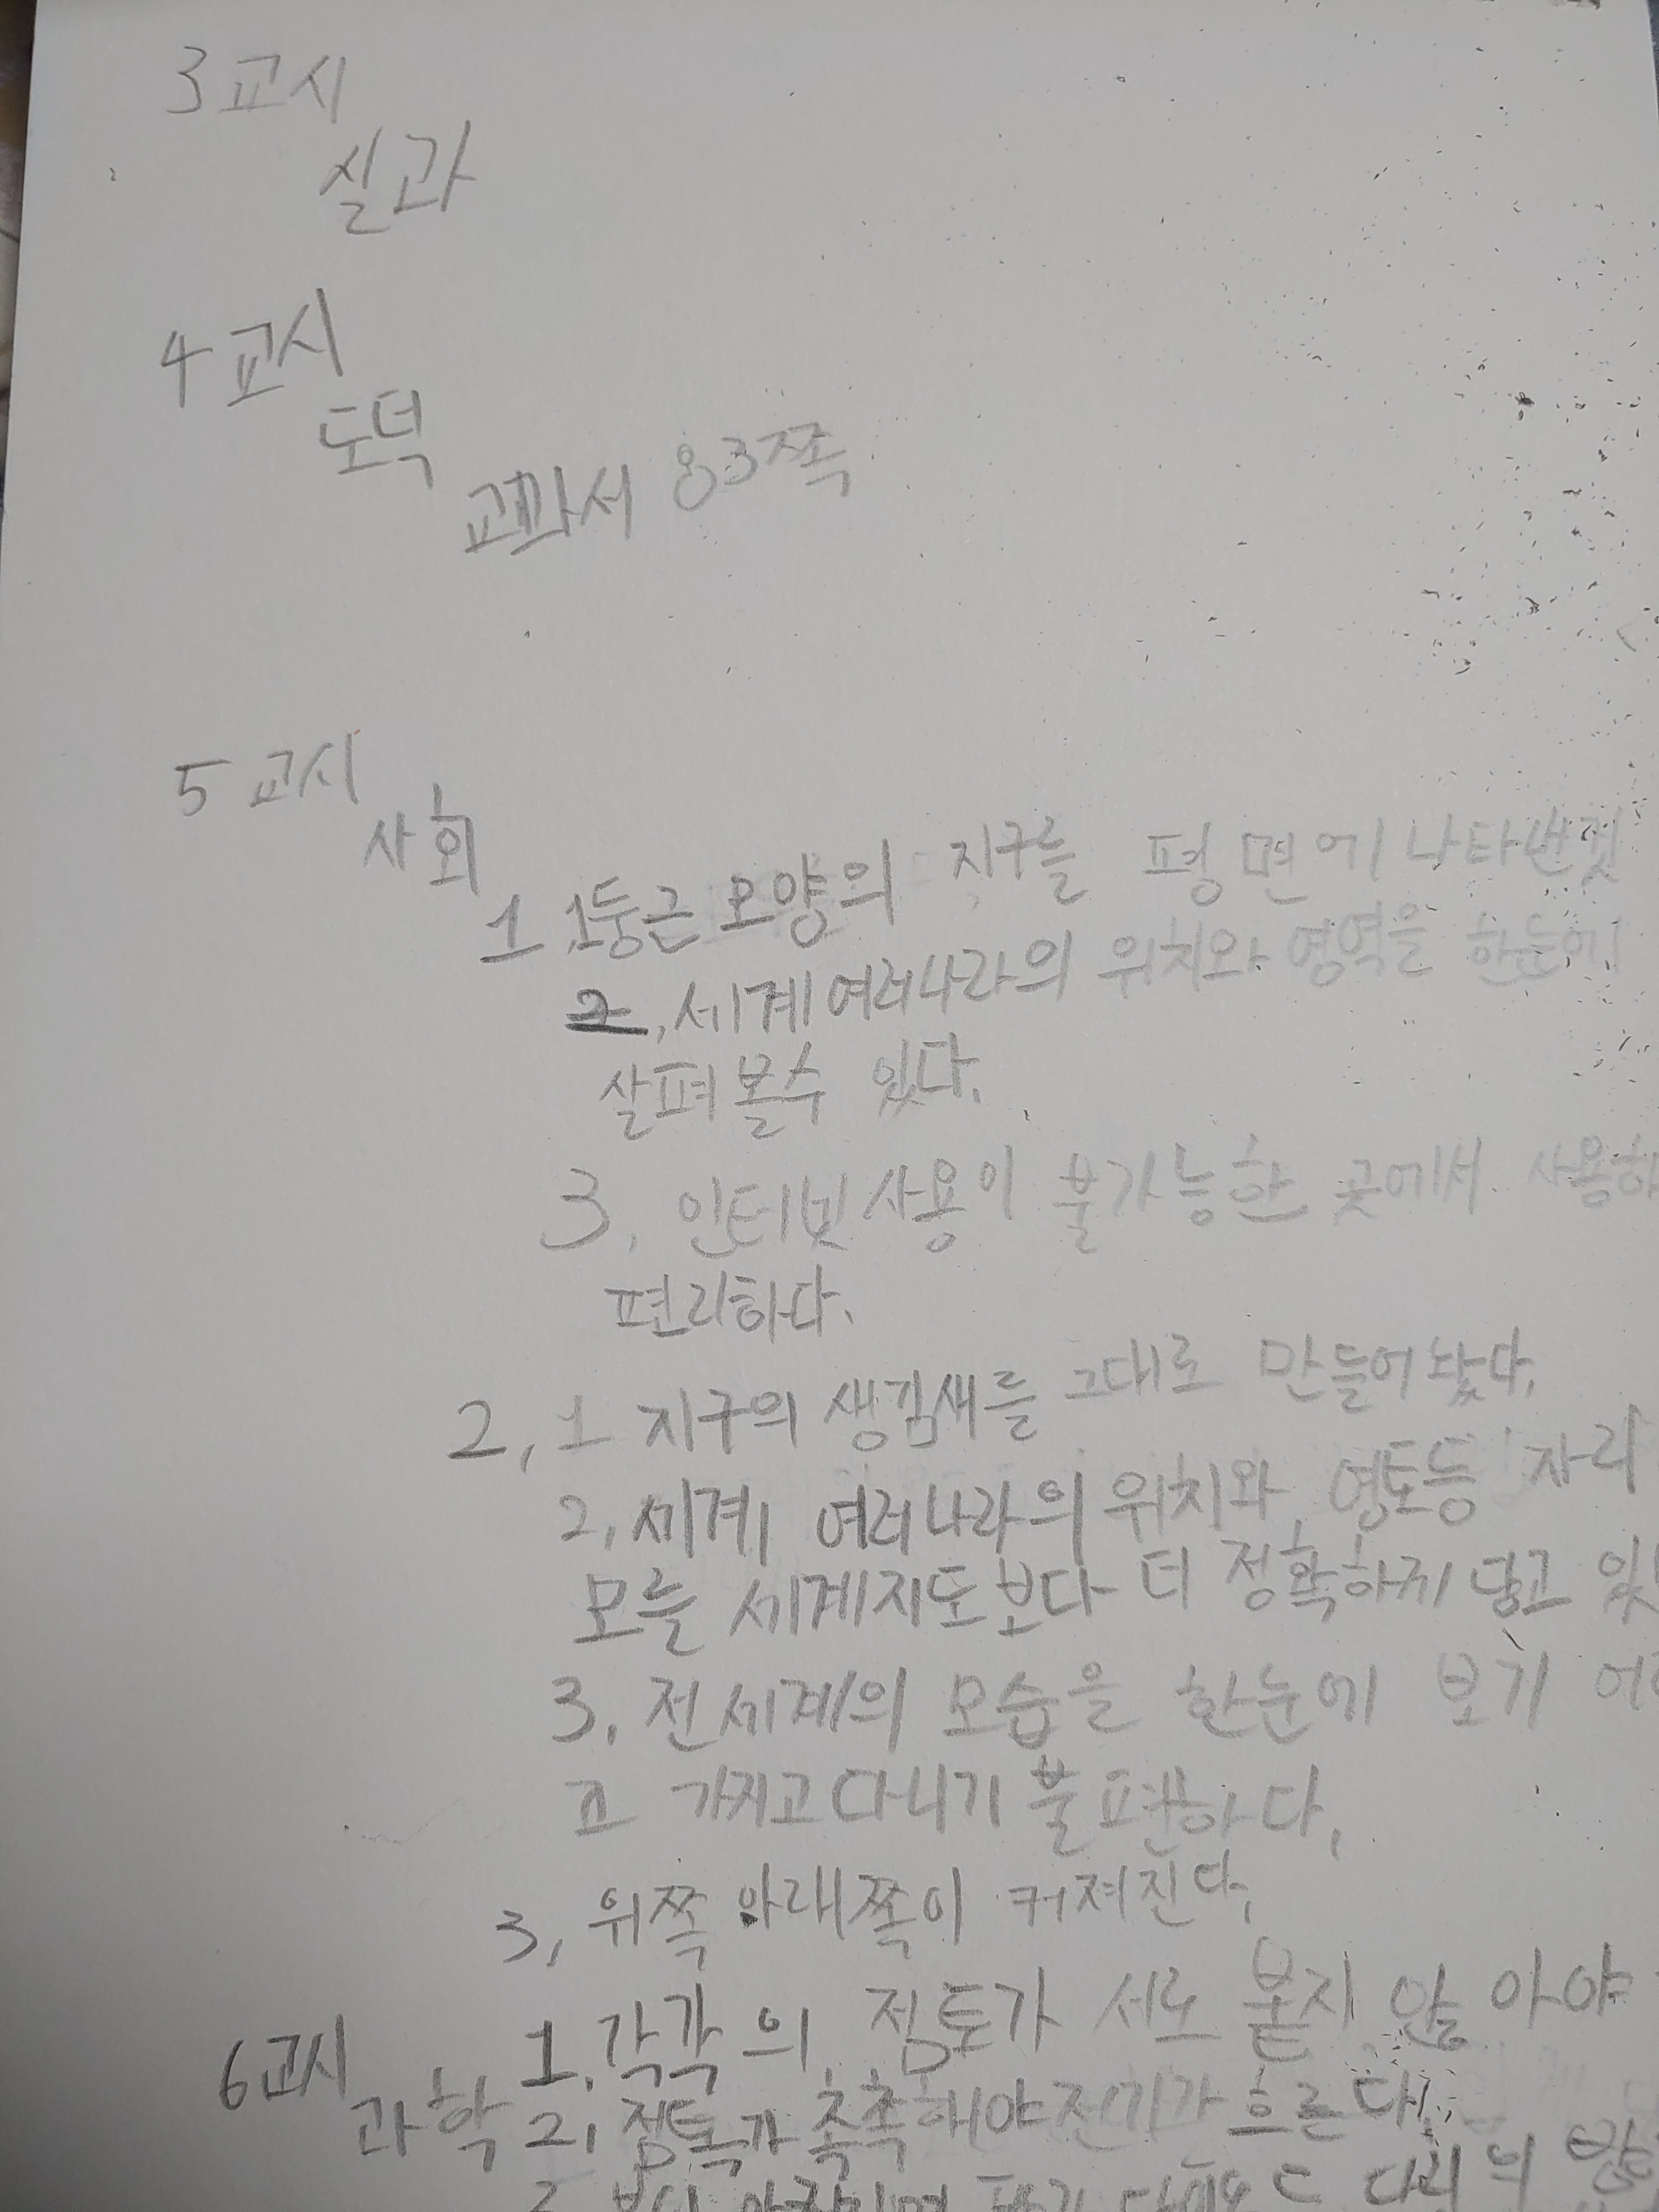 3교시
실과
4교시
도덕
교과서 83쪽
5교시
사회
1 1둥근 모양의 지구를 평면에 나타낸것
2, 세계여러나라의 위치와 영역을 한눈에
살펴볼수 있다.
3, 인터넷사용이 불가능한 곳에서 사용하
편리하다.
2, 1 지구의 생김새를 그대로 만들어놨다.
2, 세계 여러나라의 위치와 영토등 자리
모를 세계지도보다 더 정확하게 담고 있
3, 전세계의 모습을 한눈에 보기 어
고 가지고다니기 불편하다,
3, 위쪽 아래쪽이 커져진다,
6교시
과학
1, 각각의 점토가 서로 붙지 않아야
2, 점토가 촉촉해야 전기가 흐른다,
다리의